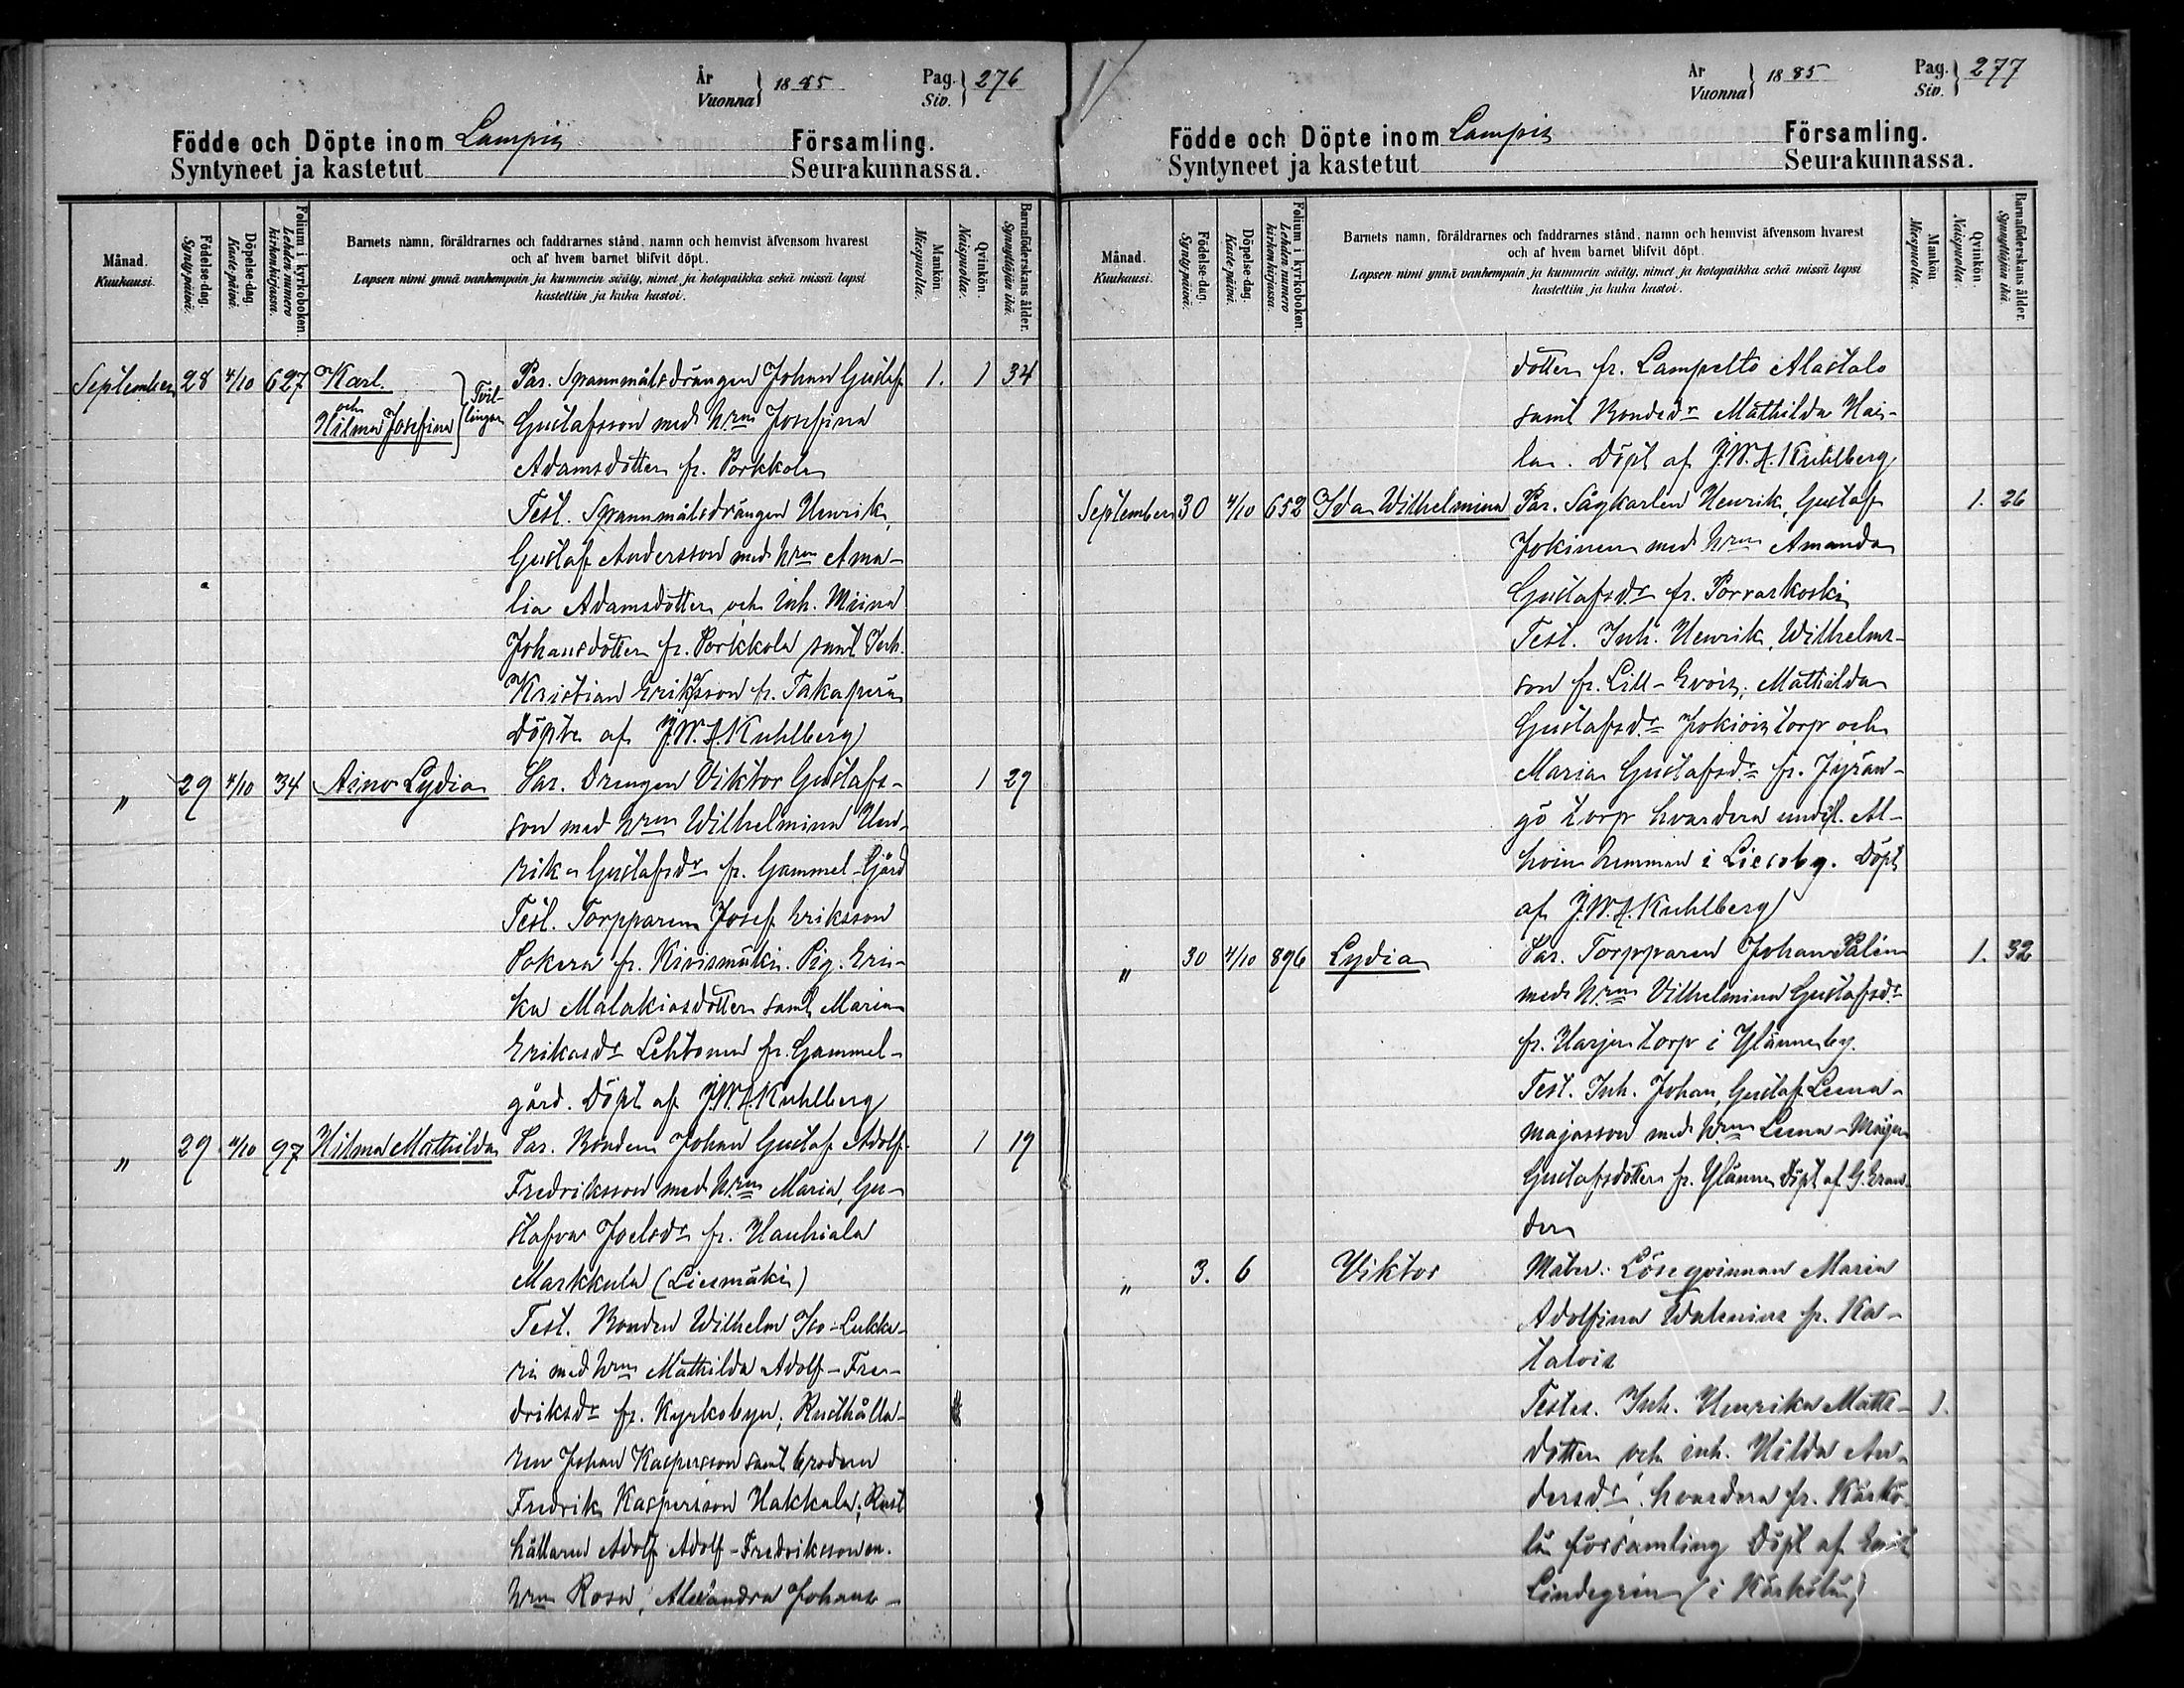 År
Vuonna } 1885
Pag.
Siv. } 276
Födde och Döpte inom Lampis Församling.
Syntyneet ja kastetut Seurakunnassa.
Månad.
Kuukausi.
Födelse-dag.
Synty-päivä.
Döpelse-dag.
Kaste-päivä.
Folium i kyrkoboken.
Lehden numero
kirkonkirjassa.
Barnets namn, föräldrarnes och faddrarnes stånd, namn och hemvist äfvensom hvarest
och af hvem barnet blifvit döpt.
Lapsen nimi ynnä vanhempain ja kummein sääty, nimet ja kotopaikka sekä missä lapsi
kastettiin ja kuka kastoi.
Mankön.
Miespuolia.
Qvinkön.
Naispuolia.
Barnaföderskans ålder.
Synnyttäjän ikä.
September 28 4/10 627 Karl Par. Spannmålsdrängen Johan Gustaf 1. 1 34
och Hilma Josefina } Tvillingar Gustafsson med hrun Josefina
Adamsdotter fr. Porkkola
Test. Spannmålsdrängen Henrik
Gustaf Andersson med hrun Ama-
lia Adamsdotter och Inh. Miina
Johansdotter fr. Porkkola samt Inh.
Kristian Eriksson fr. Takaperä
Döpte af J.W.A. Kuhlberg
" 29 4/10 34 Aino Lydia Par. Drengen Viktor Gustafs- 1 29
son med hrun Wilhelmina Hen-
rika Gustafsdr fr. Gammel-Gård
Test. Torpparen Josef Eriksson
Pokera fr. Kivismäki. Pig. Eri-
ka Malakiasdotter samt Maria
Eriksdr Lehtonen fr. Gammel-
gård. Döpt af J.W.A. Kuhlberg
" 29 4/10 97 Hilma Mathilda Par. Bonden Johan Gustaf Adolf 1 19
Fredriksson med hrun Maria Gu-
stafva Joelsdr fr. Hauhiala
Markkula (Liesmäki)
Test. Bonden Wilhelm Iso-Lukka-
ri med hrun Mathilda Adolf-Fre-
driksdr fr. Kyrkobyn, Rusthålla-
ren Johan Kaspersson samt brodern
Fredrik Kaspersson Hakkala, Rust
hållaren Adolf Adolf-Fredriksson m.
hrun Rosa Alexandra Johans-
År
Vuonna } 1885
Pag.
Siv. } 277
Födde och Döpte inom Lampis Församling.
Syntyneet ja kastetut Seurakunnassa.
Månad.
Kuukausi.
Födelse-dag.
Synty-päivä.
Döpelse-dag.
Kaste-päivä.
Folium i kyrkoboken.
Lehden numero
kirkonkirjassa.
Barnets namn, föräldrarnes och faddrarnes stånd, namn och hemvist äfvensom hvarest
och af hvem barnet blifvit döpt.
Lapsen nimi ynnä vanhempain ja kummein sääty, nimet ja kotopaikka sekä missä lapsi
kastettiin ja kuka kastoi.
Mankön.
Miespuolia.
Qvinkön.
Naispuolia.
Barnaföderskans ålder.
Synnyttäjän ikä.
dotter fr. Lampelto Alastalo
samt Bondedr Mathilda Hai-
la. Döpt af J.W.A. Kuhlberg
September 30 4/10 652 Ida Wilhelmina Par. Sågkarlen Henrik Gustaf 1. 26
Jokinen med hrun Amanda
Gustafsdr fr. Porraskoski
Test. Inh. Henrik Wilhelms-
son fr. Lill-Evois, Mathilda
Gustafsdr Jokiois torp och
Maria Gustafsdr fr. Jyrän-
gö torp hvardera under Al-
hvin hemman i Lieso by. Döpt
af J.W.A. Kuhlberg
" 30 4/10 896 Lydia Par. Torpparen Johan Palin 1. 32
med hrun Vilhelmina Gustafsdr
fr. Harju torp i Ylänne by.
Test. Inh. Johan Gustaf Leena-
majasson med hrun Leena-Maja
Gustafsdotter fr. Ylänne Döpt af G. Gran-
der
" 3. 6 Viktor Mater: Lösqvinnan Maria
Adolfina Walenius fr. Ka-
talois
Testes. Inh. Henrika Matts- 1.
dotter och inh. Hilda An-
dersdr hvardera fr. Kärkö-
lä församling Döpt af
Lindegrén (i Kärkölä)